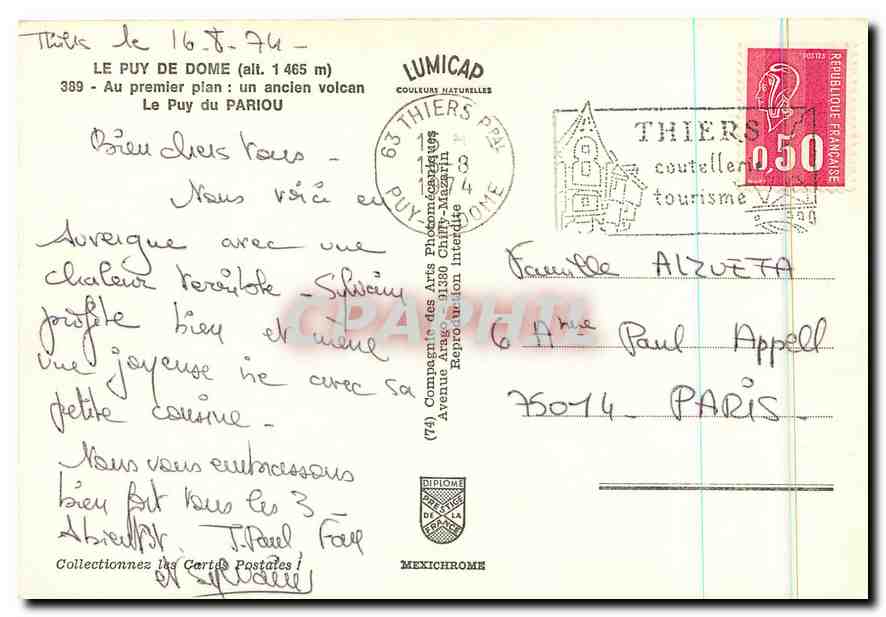 Thiers le 16-8-74-
LE PUY DE DOME (alt. 1 465 m)
389 - Au premier plan : un ancien volcan
Le Puy du PARIOU
LUMICAP
COULEURS NATURELLES
63 THIERS PPAL
1974
PUY-DE-DOME
THIERS
coutellerie
tourisme
POSTES
RÉPUBLIQUE FRANÇAISE
0,50
Bien chers Vous -
Nous voici en
Auvergne avec une
chaleur véritable - Sylvain
profite bien et mène
une joyeuse vie avec sa
petite cousine -
Nous vous embrassons
bien fort tous les 3 -
A bientôt. J. Paul,
et Sylvain
Famille ALZUETA
6 Anue Paul Appell
75014 - PARIS -
(74) Compagnie des Arts Photomécaniques
Avenue Arago, 91380 Chilly-Mazarin
Reproduction Interdite
CPAPHIL
DIPLOME
PRESTIGE
DE LA
FRANCE
Collectionnez les Cartes Postales !
MEXICHROME